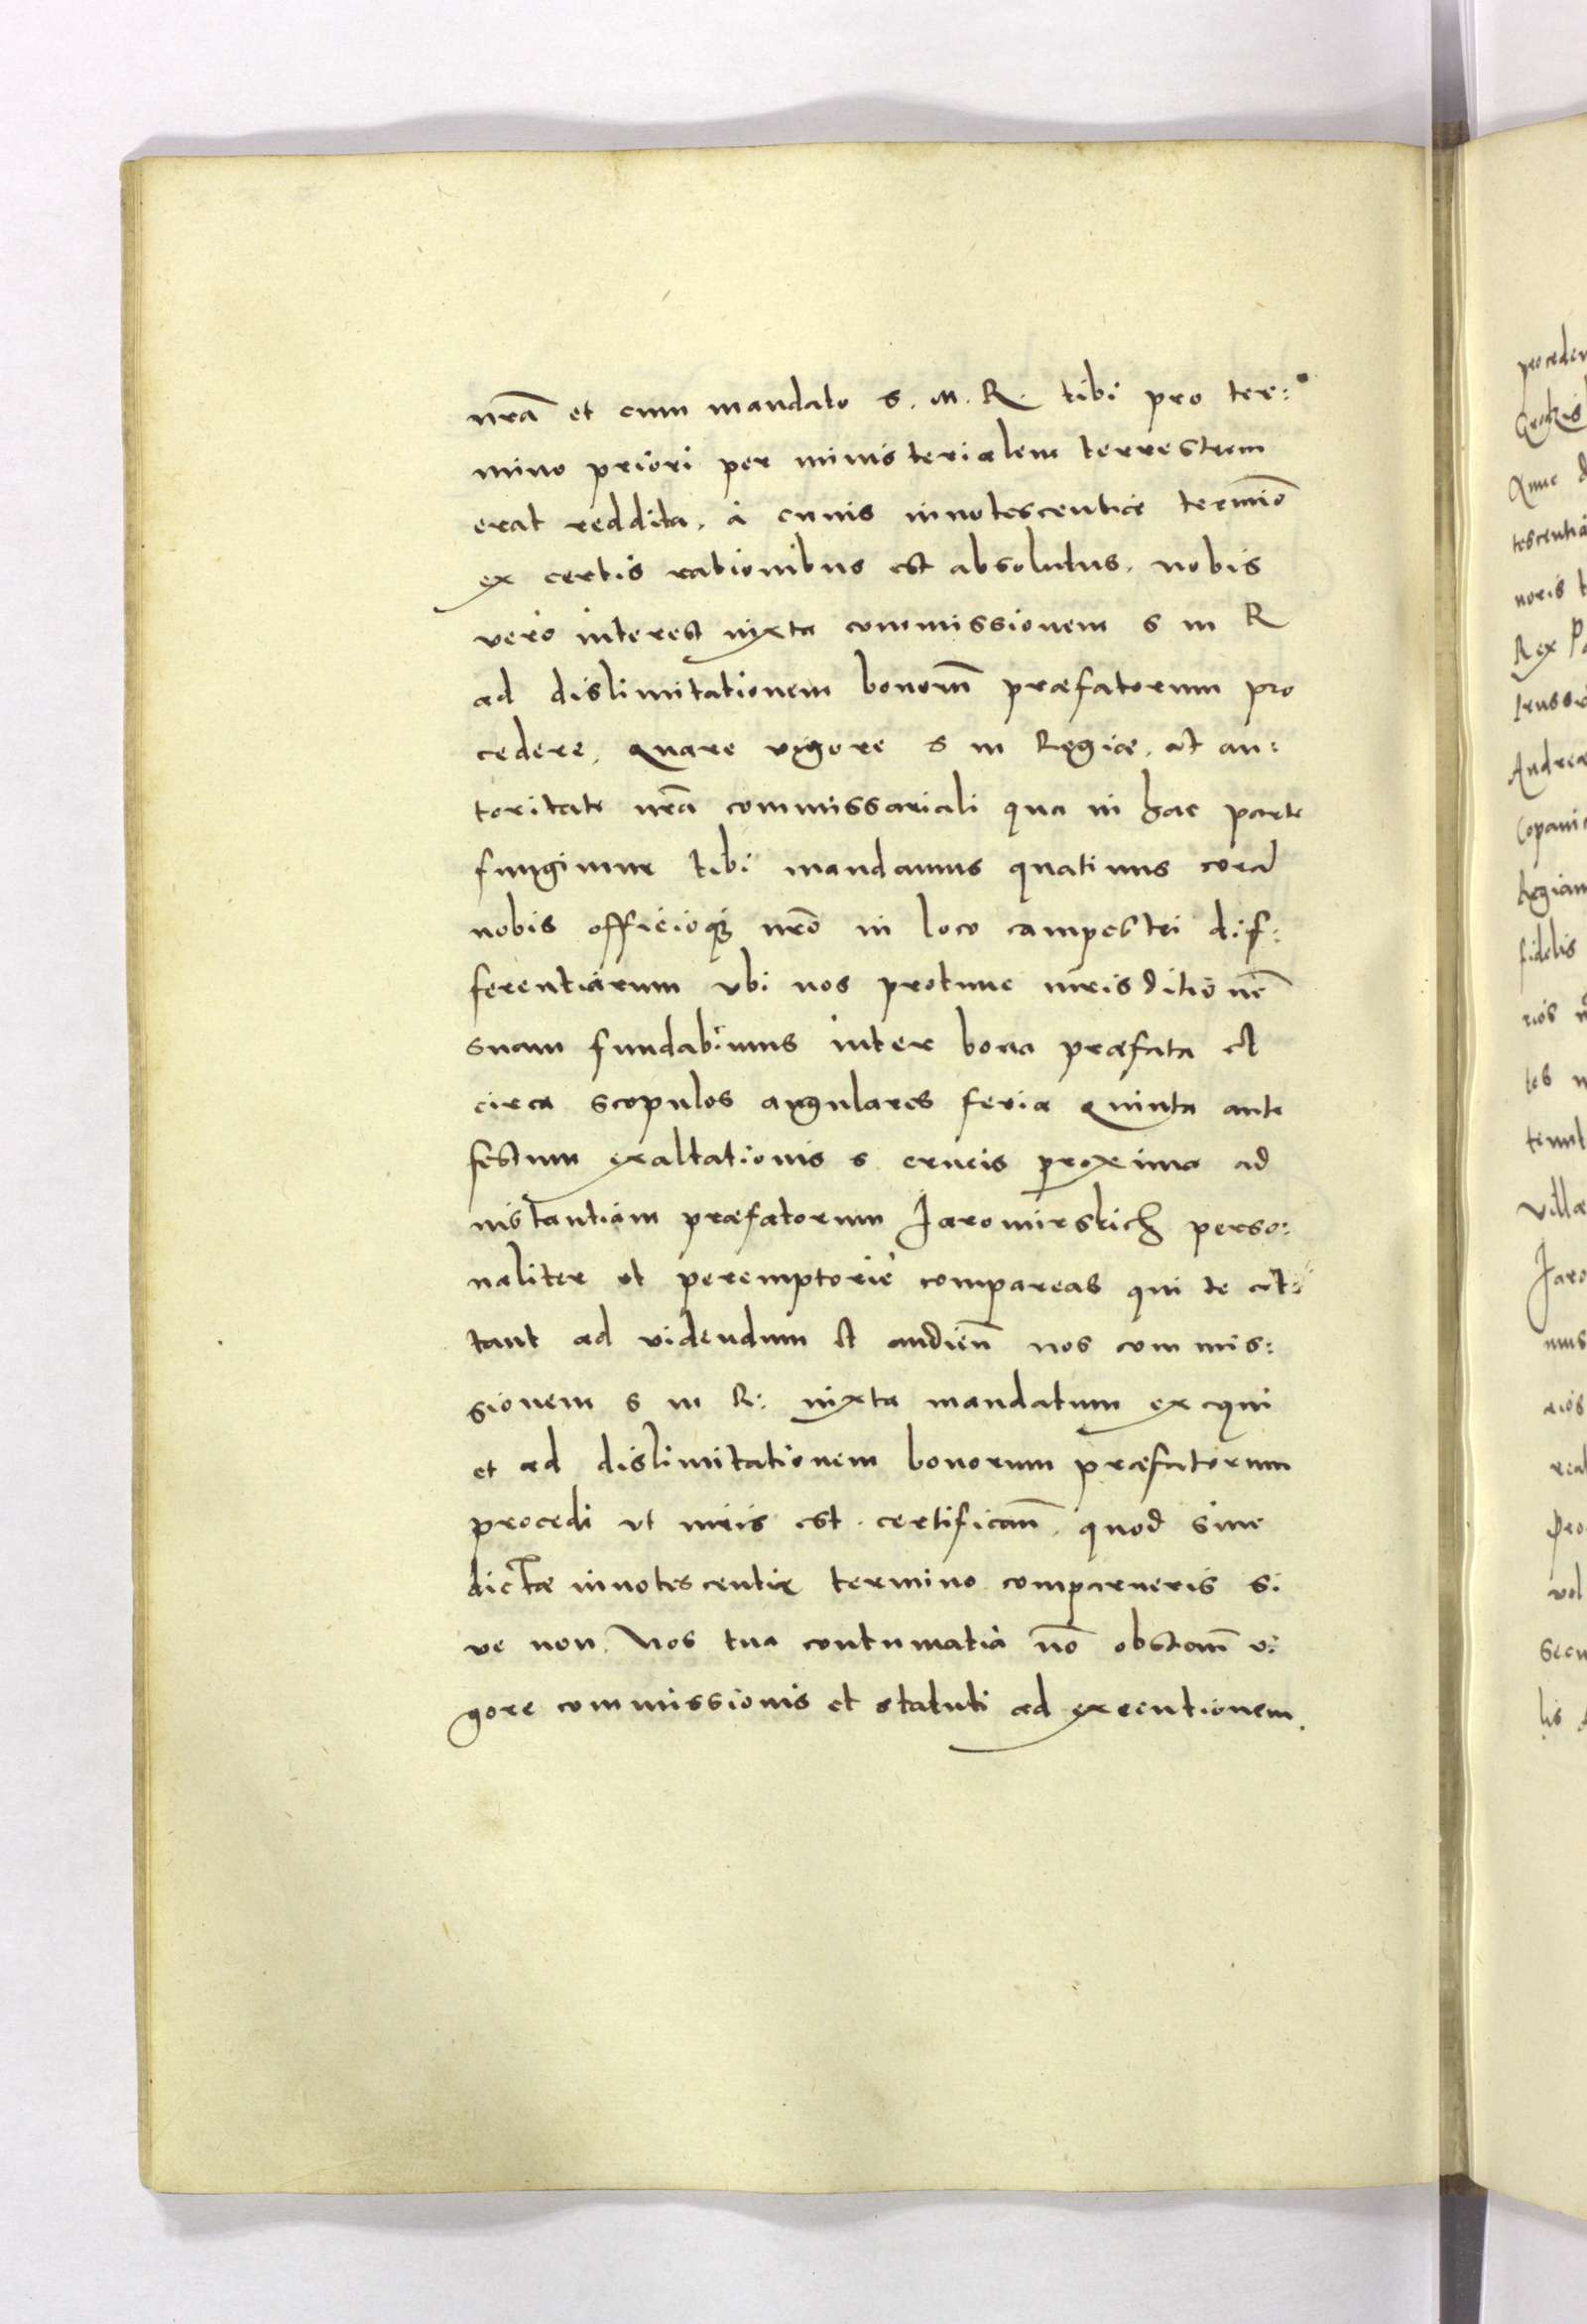 nrã et cum mandato s. M. R. tibi pro ter:
mino priori per ministerialem terrestrem
erat reddita, à cuius innotescentiæ termiõ
ex certis rationibus est absolutus, nobis
vero interest iuxta commissionem s m R
ad dislimitationem bonorũ præfatorum pro
cedere, quare vigore s m Regiæ, et au:
toritate nrã commissariali qua in hac parte
fungimur tibi mandamus quatinus corã
nobis officioq; nrõ in loco campestri dif:
ferentiarum vbi nos protunc iurisditionẽ
suam fundabimus inter bona præfata et
circa scopulos angulares feria quinta ante
festum exaltationis s crucis proxima ad
instantiam præfatorum Jaromirskich perso:
naliter et peremptorie compareas qui te cit:
tant ad videndum et audieñ nos commis:
sionem s m R: iuxta mandatum exequi
et ad dislimitationem bonorum præfatorum
procedi vt iuris est. certificañ, quod siue
dictæ innotescentiæ termino comparueris si
ve non. Nos tua contumatia nõ obstañ vi
gore commissionis et statuti ad executionem.
proceden
Nunc
tescentiã
noris
Rex
Andreæ
Copanic
Regiam
fidelis
Villæ
Jaro